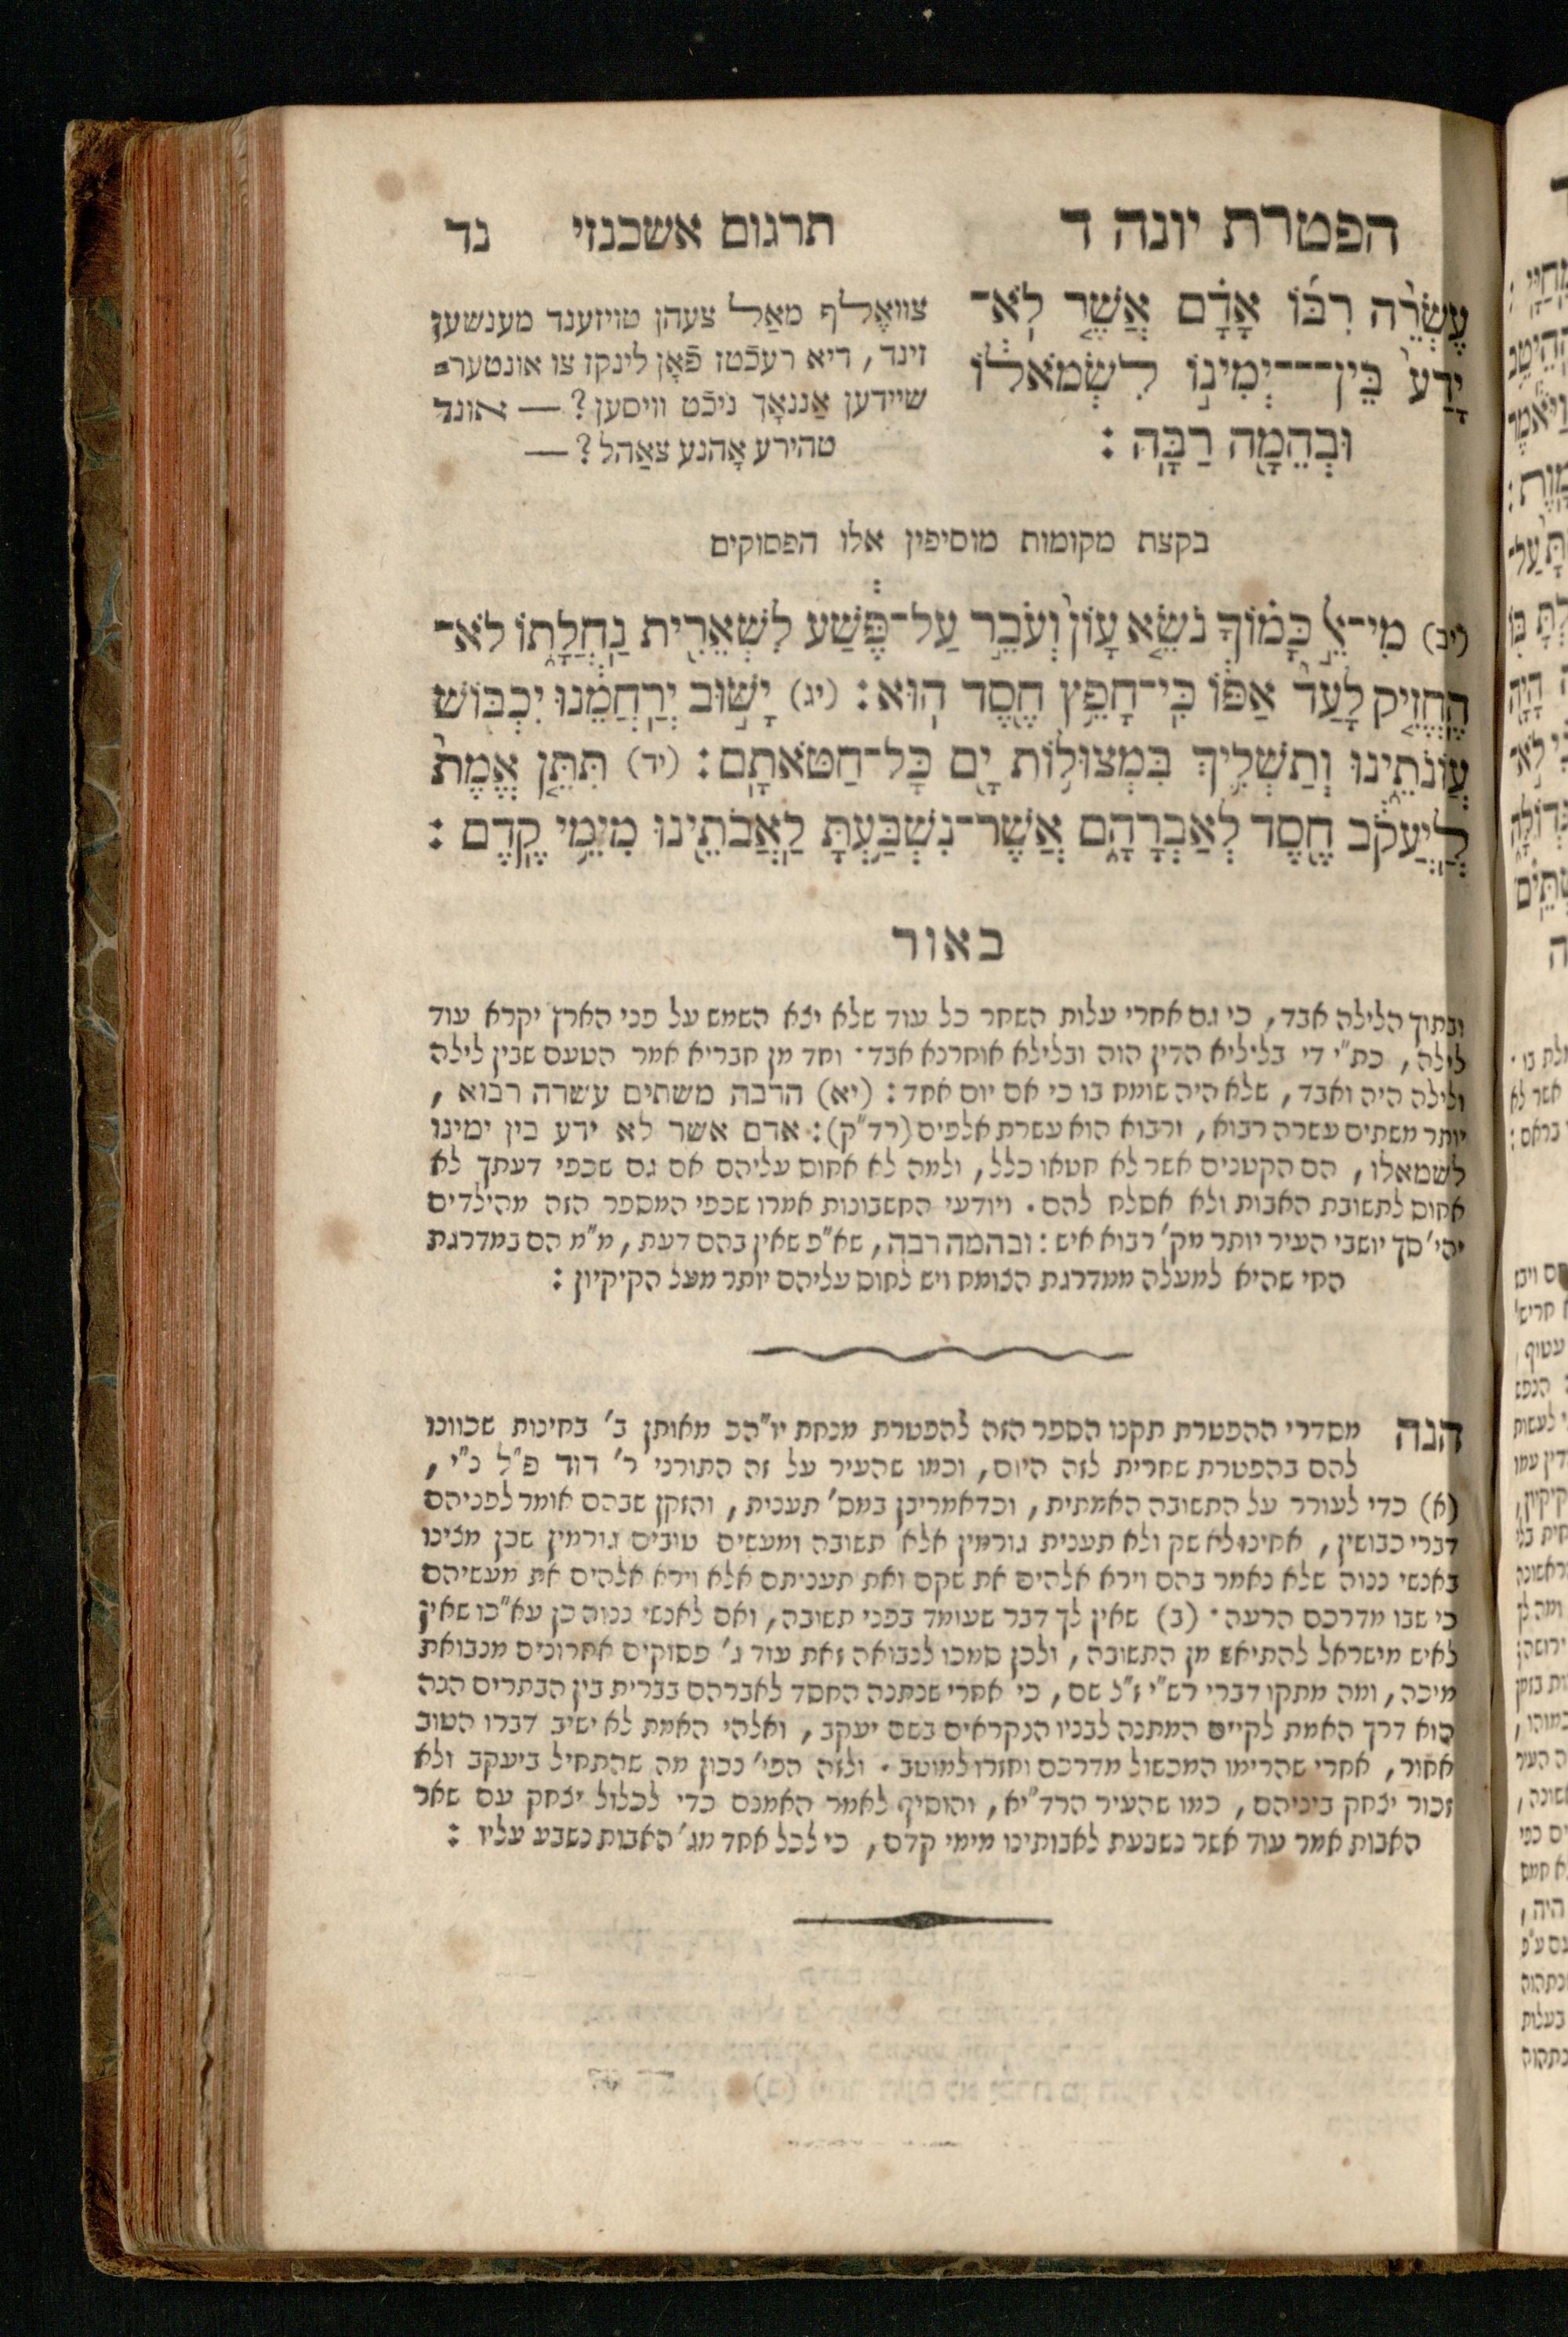 הפטרת יונה ד
תרגום אשכנזי
נד
עֶשְׂרֵה רִבּוֹ אָדָם אֲשֶׁר לֹא־
יָדַע בֵּין־יְמִינוֹ לִשְׂמֹאלוֹ
וּבְהֵמָה רַבָּה :
צוואֶלף מאַל צעהן טויזענד מענשען
זינד, דיא רעכֿטז פֿאָן לינקז צו אונטער=
שיידען אַננאָך ניכֿט וויסען? — אונד
טהירע אָהנע צאַהל? —
בקצת מקומות מוסיפין אלו הפסוקים
(יב) מִי־אֵל כָּמוֹךָ נֹשֵׂא עָוֹן וְעֹבֵר עַל־פֶּשַׁע לִשְׁאֵרִית נַחֲלָתוֹ לֹא־
הֶחֱזִיק לָעַד אַפּוֹ כִּי־חָפֵץ חֶסֶד הוּא : (יג) יָשׁוּב יְרַחֲמֵנוּ יִכְבּוֹשׁ
עֲוֹנֹתֵינוּ וְתַשְׁלִיךְ בִּמְצוּלוֹת יָם כָּל־חַטֹּאתָם : (יד) תִּתֵּן אֱמֶת
לְיַעֲקֹב חֶסֶד לְאַבְרָהָם אֲשֶׁר־נִשְׁבַּעְתָּ לַאֲבֹתֵינוּ מִימֵי קֶדֶם :
באור
ובתוך הלילה אבד, כי גם אחרי עלות השחר כל עוד שלא יצא השמש על פני הארץ יקרא עוד
לילה, כת"י די בליליא הדין הוה ובלילא אוחרנא אבד · וחד מן חבריא אמר הטעם שבין לילה
ולילה היה ואבד, שלא היה שומח בו כי אם יום אחד : (יא) הרבה משתים עשרה רבוא,
יותר משתים עשרה רבוא, ורבוא הוא עשרת אלפים (רד"ק) : אדם אשר לא ידע בין ימינו
לשמאלו, הם הקטנים אשר לא חטאו כלל, ולמה לא אחוס עליהם אם גם שכפי דעתך לא
אחוס לתשובת האבות ולא אסלח להם. ויודעי החשבונות אמרו שכפי המספר הזה מהילדים
יהי' סך יושבי העיר יותר מק' רבוא איש : ובהמה רבה, שא"פ שאין בהם דעת, מ"מ הם במדרגת
החי שהיא למעלה ממדרגת הצומח ויש לחוס עליהם יותר מעל הקיקיון :
הנה מסדרי ההפטרת תקנו הספר הזה להפטרת מנחת יו"הכ מאותן ב' בחינות שכוונו
להם בהפטרת שחרית לזה היום, וכמו שהעיר על זה התורני ר' דוד פ"ל נ"י,
(א) כדי לעורר על התשובה האמתית, וכדאמרינן במס' תענית, והזקן שבהם אומר לפניהם
דברי כבושין, אחינו לא שק ולא תענית גורמין אלא תשובה ומעשים טובים גורמין שכן מצינו
באנשי ננוה שלא נאמר בהם וירא אלהים את שקם ואת תעניתם אלא וירא אלהים את מעשיהם
כי שבו מדרכם הרעה · (ב) שאין לך דבר שעומד בפני תשובה, ואם לאנשי ננוה כן עא"כו שאין
לאיש מישראל להתיאש מן התשובה, ולכן סמכו לנבואה זאת עוד ג' פסוקים אחרונים מנבואת
מיכה, ומה מתקו דברי רש"י ז"ל שם, כי אחרי שנתנה החסד לאברהם בברית בין הבתרים הנה
הוא דרך האמת לקיים המתנה לבניו הנקראים בשם יעקב, ואלהי האמת לא ישיב דברו הטוב
אחור, אחרי שהרימו המכשול מדרכם וחזרו למוטב. ולזה הפי' נכון מה שהתחיל ביעקב ולא
זכור יצחק ביניהם, כמו שהעיר הרד"יא, והוסיף לאמר האמנם כדי לכלול יצחק עם שאר
האבות אמר עוד אשר נשבעת לאבותינו מימי קדם, כי לכל אחד מג' האבות נשבע עליו :